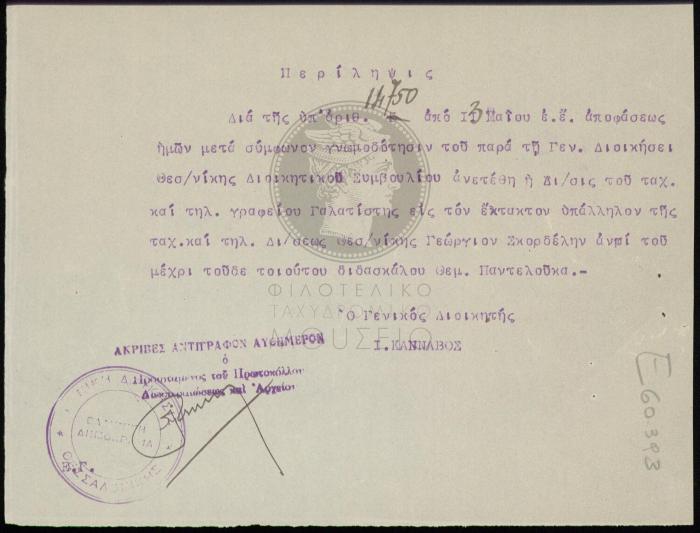 Περίληψις
14750
Διά τῆς ὑπ'ἀριθ. ἀπό 13 Μαΐου ἐ.ἔ. ἀποφάσεως
ἡμῶν μετά σύμφωνον γνωμοδότησιν τοῦ παρά τῇ Γεν. Διοικήσει
Θεσ/νίκης Διοικητικοῦ Συμβουλίου ἀνετέθη ἡ Δι/σις τοῦ ταχ.
καί τηλ. γραφείου Γαλατίστης εἰς τόν ἔκτακτον ὑπάλληλον τῆς
ταχ.καί τηλ. Δι/σεως Θεσ/νίκης Γεώργιον Σκορδέλην ἀντί τοῦ
μέχρι τοῦδε τοιούτου διδασκάλου Θεμ. Παντελούκα.-
ΦΙΛΟΤΕΛΙΚΟ
ΤΑΧΥΔΡΟΜΙΚΟ
ΜΟΥΣΕΙΟ
Ὁ Γενικός Διοικητής
Ι. ΚΑΝΝΑΒΟΣ
ΑΚΡΙΒΕΣ ΑΝΤΙΓΡΑΦΟΝ ΑΥΘΗΜΕΡΟΝ
ὁ
Προϊστάμενος τοῦ Πρωτοκόλλου
Διεκπεραιώσεως καί Ἀρχείου
ΕΛΛΗΝΙΚΗ
ΔΗΜΟΚΡΑΤΙΑ
ΘΕΣΣΑΛΟΝΙΚΗΣ
Ε.Γ.
Ε60393